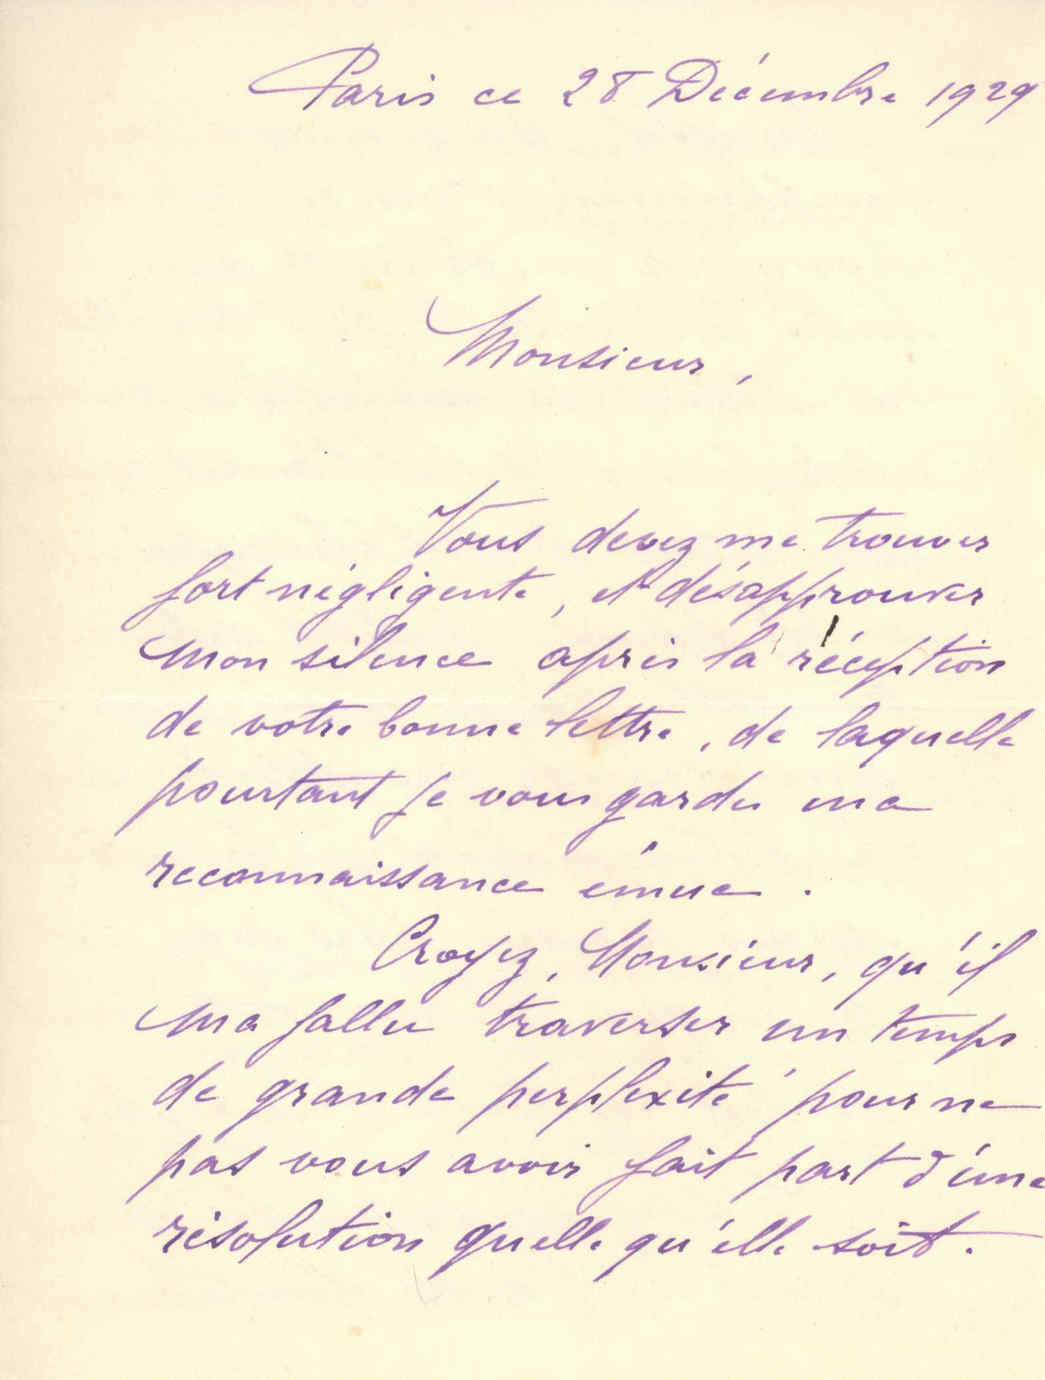 Paris ce 28 Décembre 1929
Monsieur,
Vous devez me trouver
fort négligente, et désapprouver
mon silence après la réception
de votre bonne lettre, de laquelle
pourtant je vous garde ma
reconnaissance émue.
Croyez, Monsieur, qu'il
m'a fallu traverser un temps
de grande perplexité pour ne
pas vous avoir fait part d'une
résolution quelle qu'elle soit.